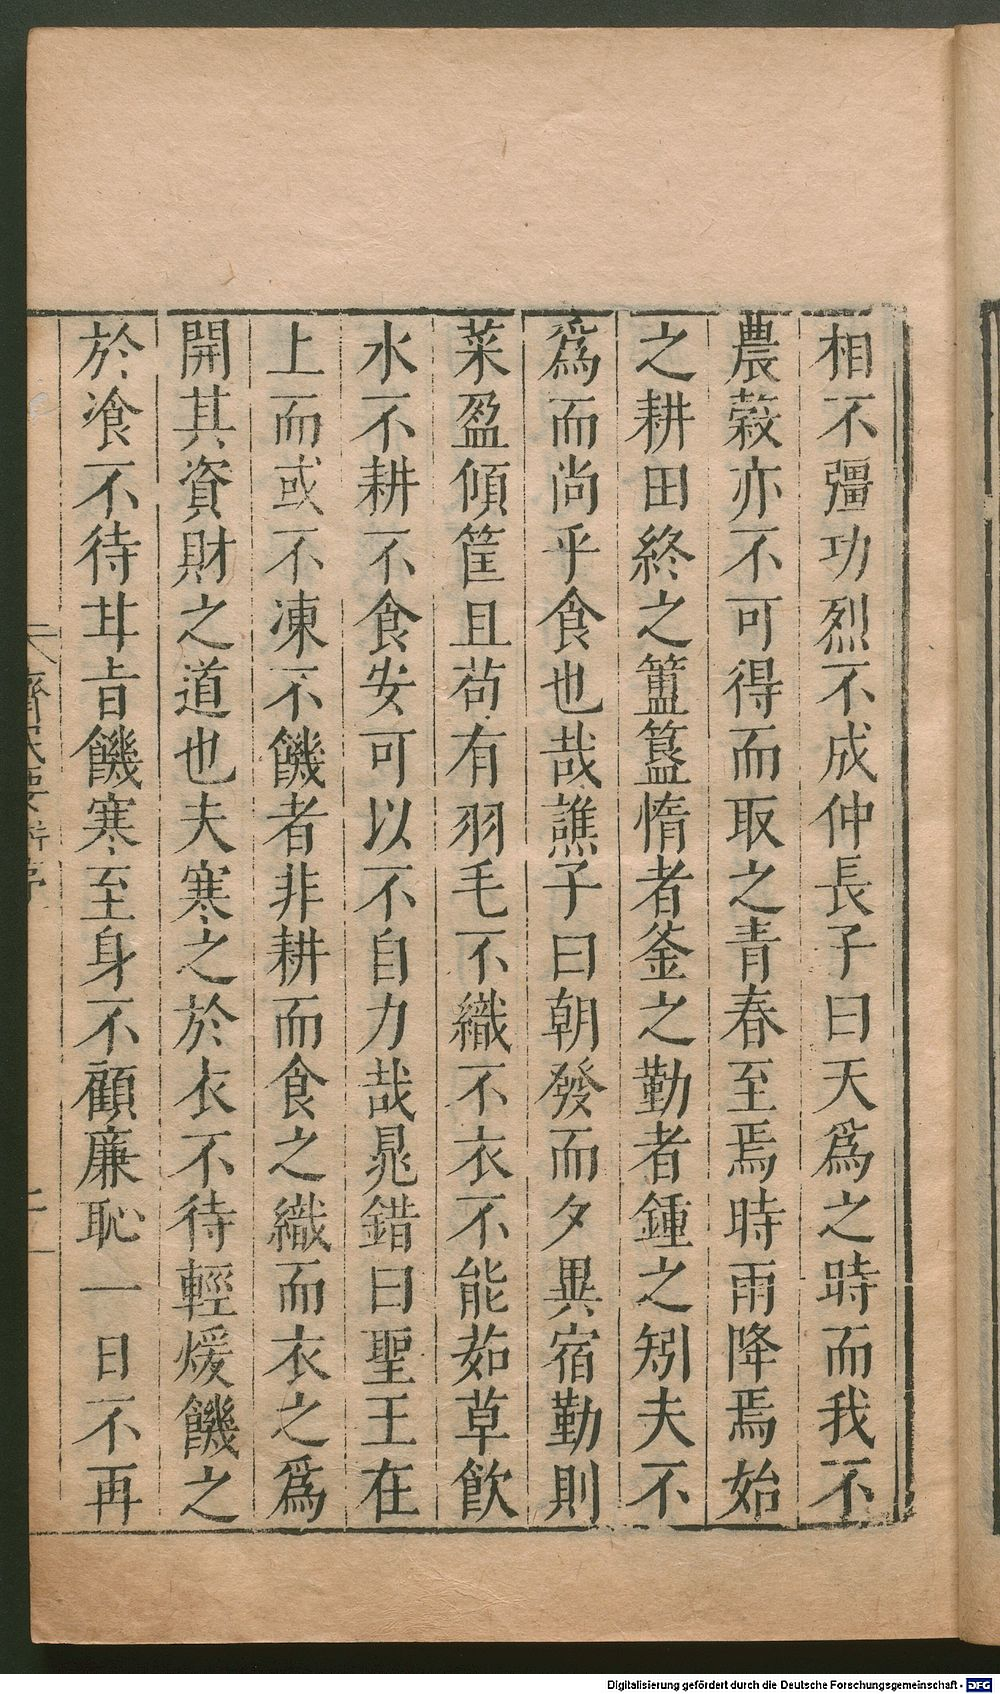 相不彊功烈不成仲長子曰天爲之時而我不
農穀亦不可得而取之青春至焉時雨降焉始
之耕田終之簠簋惰者釜之勤者鍾之矧夫不
爲而尚乎食也哉譙子曰朝發而夕異宿勤則
菜盈傾筐且苟有羽毛不織不衣不能茹草飮
水不耕不食安可以不自力哉晁錯曰聖王在
上而或不凍不饑者非耕而食之織而衣之爲
開其資財之道也夫寒之於衣不待輕煖饑之
於飡不待甘旨饑寒至身不顧廉恥一日不再
齊民要術序
Digitalisierung gefördert durch die Deutsche Forschungsgemeinschaft - DFG